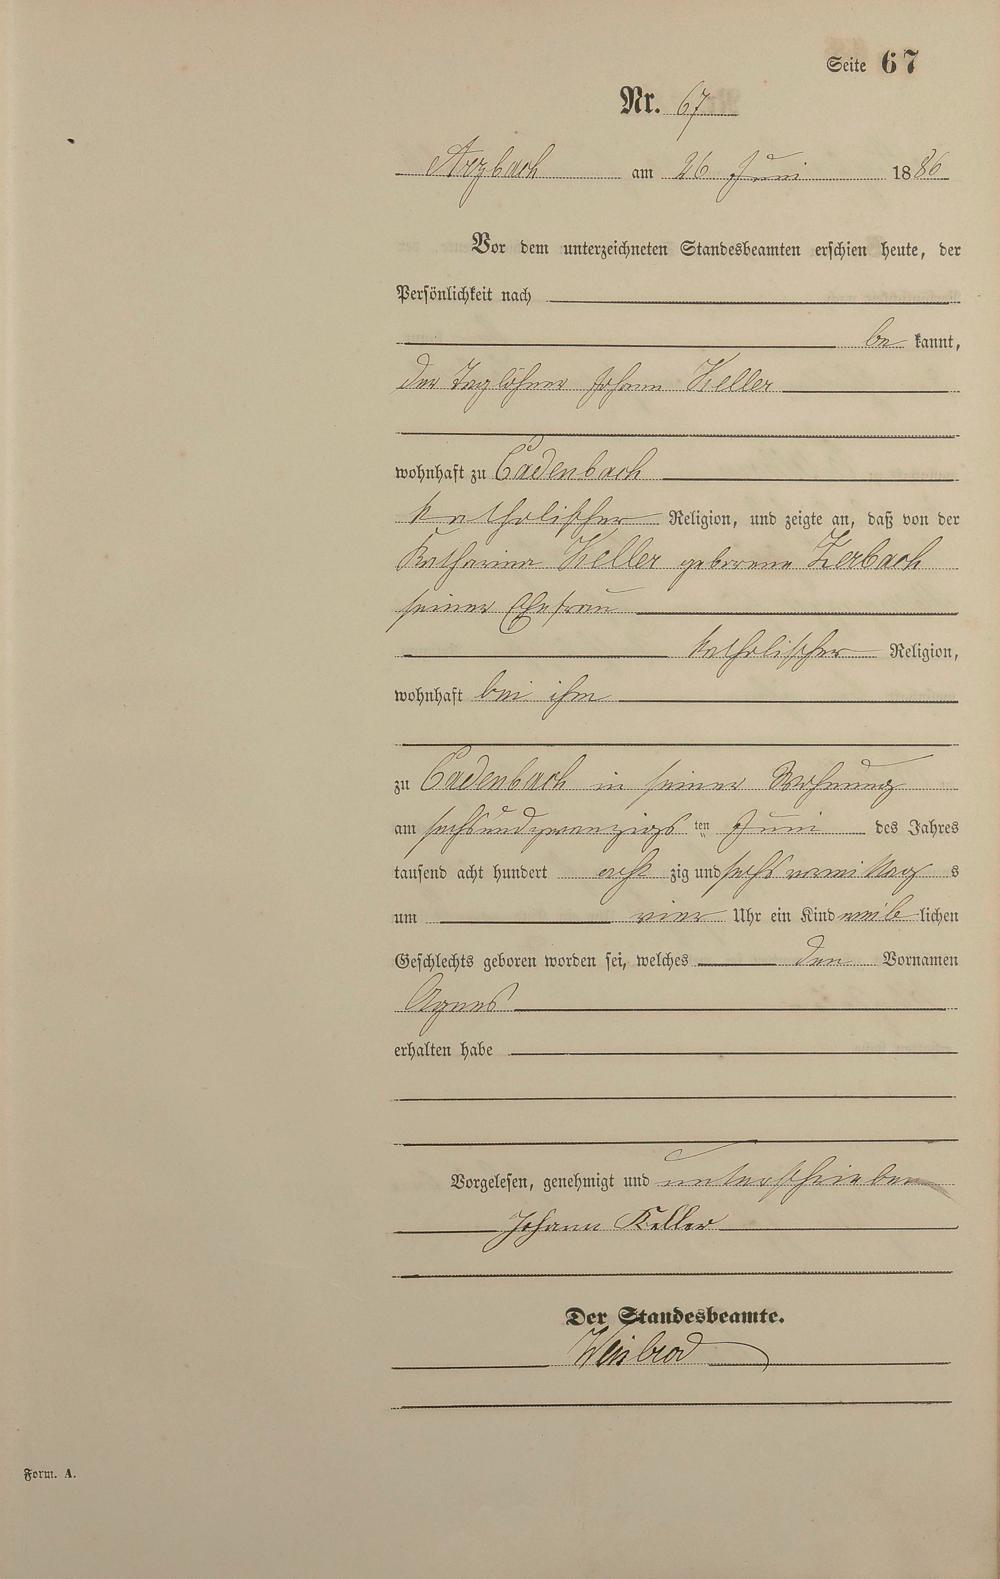 Seite 67
Nr. 67
Arzbach am 26 Juni 1886
Vor dem unterzeichneten Standesbeamten erschien heute, der
Persönlichkeit nach
be kannt,
der Taglöhner Johann Keller
wohnhaft zu Cadenbach
katholischer Religion, und zeigte an, daß von der
Katharina Keller geborene Zerbach
seiner Ehefrau
katholischer Religion,
wohnhaft bei ihm
zu Cadenbach in seiner Wohnung
am sechsundzwanzigs ten Juni des Jahres
tausend acht hundert acht zig und sechs vormittag s
um vier Uhr ein Kind weib lichen
Geschlechts geboren worden sei, welches den Vornamen
Agnes
erhalten habe
Vorgelesen, genehmigt und unterschrieben
Johann Keller
Der Standesbeamte.
Weisbrod
Form. A.